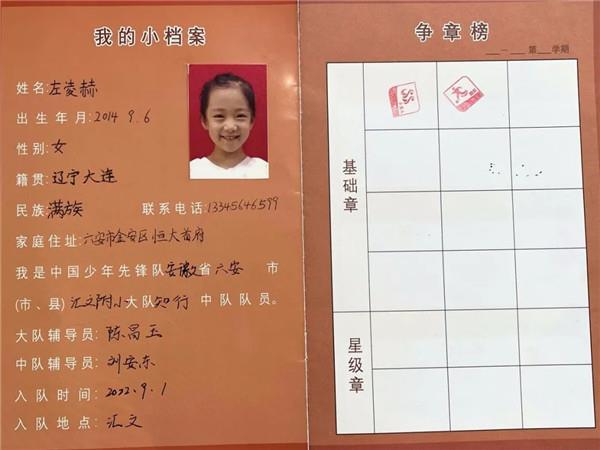 我的小档案
姓名:左凌赫
出生年月:2014 9.6
性别:女
籍贯:辽宁大连
民族:满族 联系电话:13345646599
家庭住址:六安市金安区恒大首府
我是中国少年先锋队安徽省六安市
(市、县)汇文附小大队知行中队队员。
大队辅导员:陈昌玉
中队辅导员:刘安东
入队时间:2022.9.1
入队地点:汇文
争章榜
— 第 学期
基础章
星级章